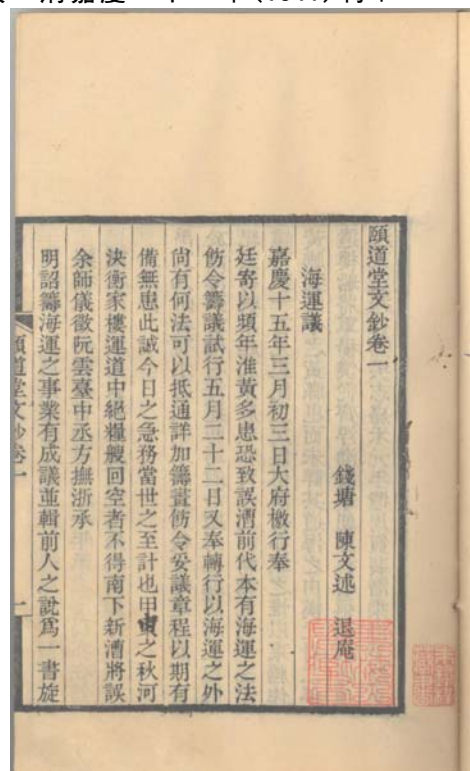 頤道堂文鈔卷一
錢塘 陳文述 退庵
海運議
嘉慶十五年三月初三日大府檄行奉
廷寄以頻年淮黃多患恐致誤漕前代本有海運之法
飭令籌議試行五月二十二日又奉轉行以海運之外
尚有何法可以抵通詳加籌畫飭令妥議章程以期有
備無患此誠今日之急務當世之至計也甲寅之秋河
決衡家樓運道中絕糧艘回空者不得南下新漕將誤
余師儀徵阮雲臺中丞方撫浙承
明詔籌海運之事業有成議並輯前人之說爲一書旋
頤道堂文鈔卷一 一